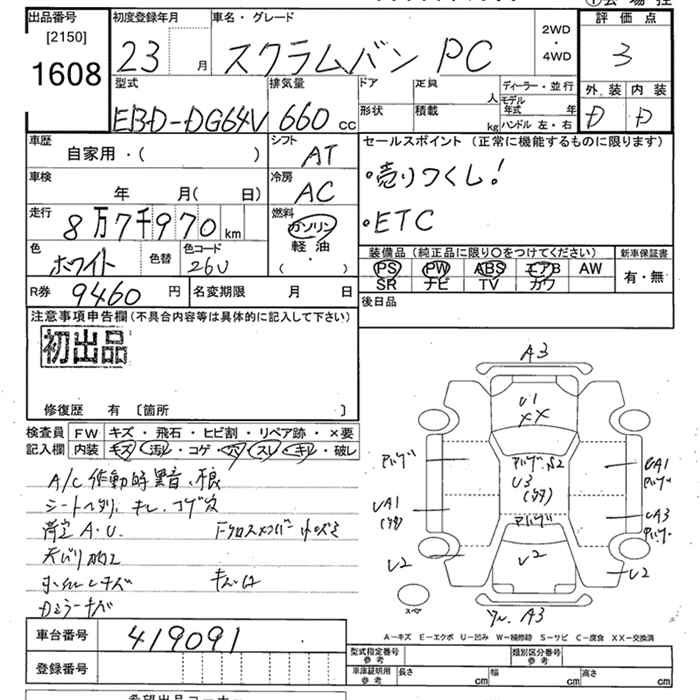 出品番号
[2150]
1608
初度登録年月
23 月
車名・グレード
スクラムバン PC
2WD
・
4WD
評価点
3
外装 内装
D D
型式
EBD-DG64V
排気量
660 cc
ドア
定員
人
形状
積載
kg
ディーラー・並行
モデル年式 年
ハンドル 左・右
車歴
自家用・( )
シフト
AT
車検
年 月( 日)
冷房
AC
走行
8万7千970 km
燃料
ガソリン
軽油
・
( )
色
ホワイト
色替
色コード
26U
R券
9460 円
名変期限 月 日
セールスポイント (正常に機能するものに限ります)
・売りつくし!
・ETC
装備品 (純正品に限り○をつけてください)
PS PW ABS エアB AW
SR ナビ TV カワ
新車保証書
有・無
後日品
注意事項申告欄(不具合内容等は具体的に記入して下さい)
初出品
修復歴 有 〔箇所 〕
検査員
記入欄
FW キズ・飛石・ヒビ割・リペア跡・×要
内装 キズ・汚レ・コゲ・穴・スレ・キレ・破レ
A/C 作動時異音
キレ、コゲ穴
A.U.
A3
U1
XX
U3
U2
UA1
UA1
UA3
U2
U2
A3
スペア
A−キズ E−エクボ U−凹み W−補修跡 S−サビ C−腐食 XX−交換済
車台番号
419091
登録番号
型式指定番号
参考
類別区分番号
参考
車庫証明用
参考
長さ cm
幅 cm
高さ cm